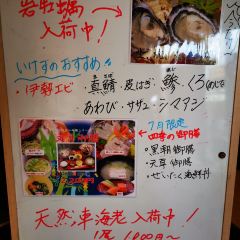 岩牡蠣
入荷中!
いけすのおすすめ
・伊勢エビ
・真鯖・皮はぎ・鰺・くろ(めじな)
あわび・サザエ・シマアジ
7月限定
四季の御膳
・黒潮御膳
・天草御膳
・ぜいたく海鮮丼
天然車海老入荷中!
1尾